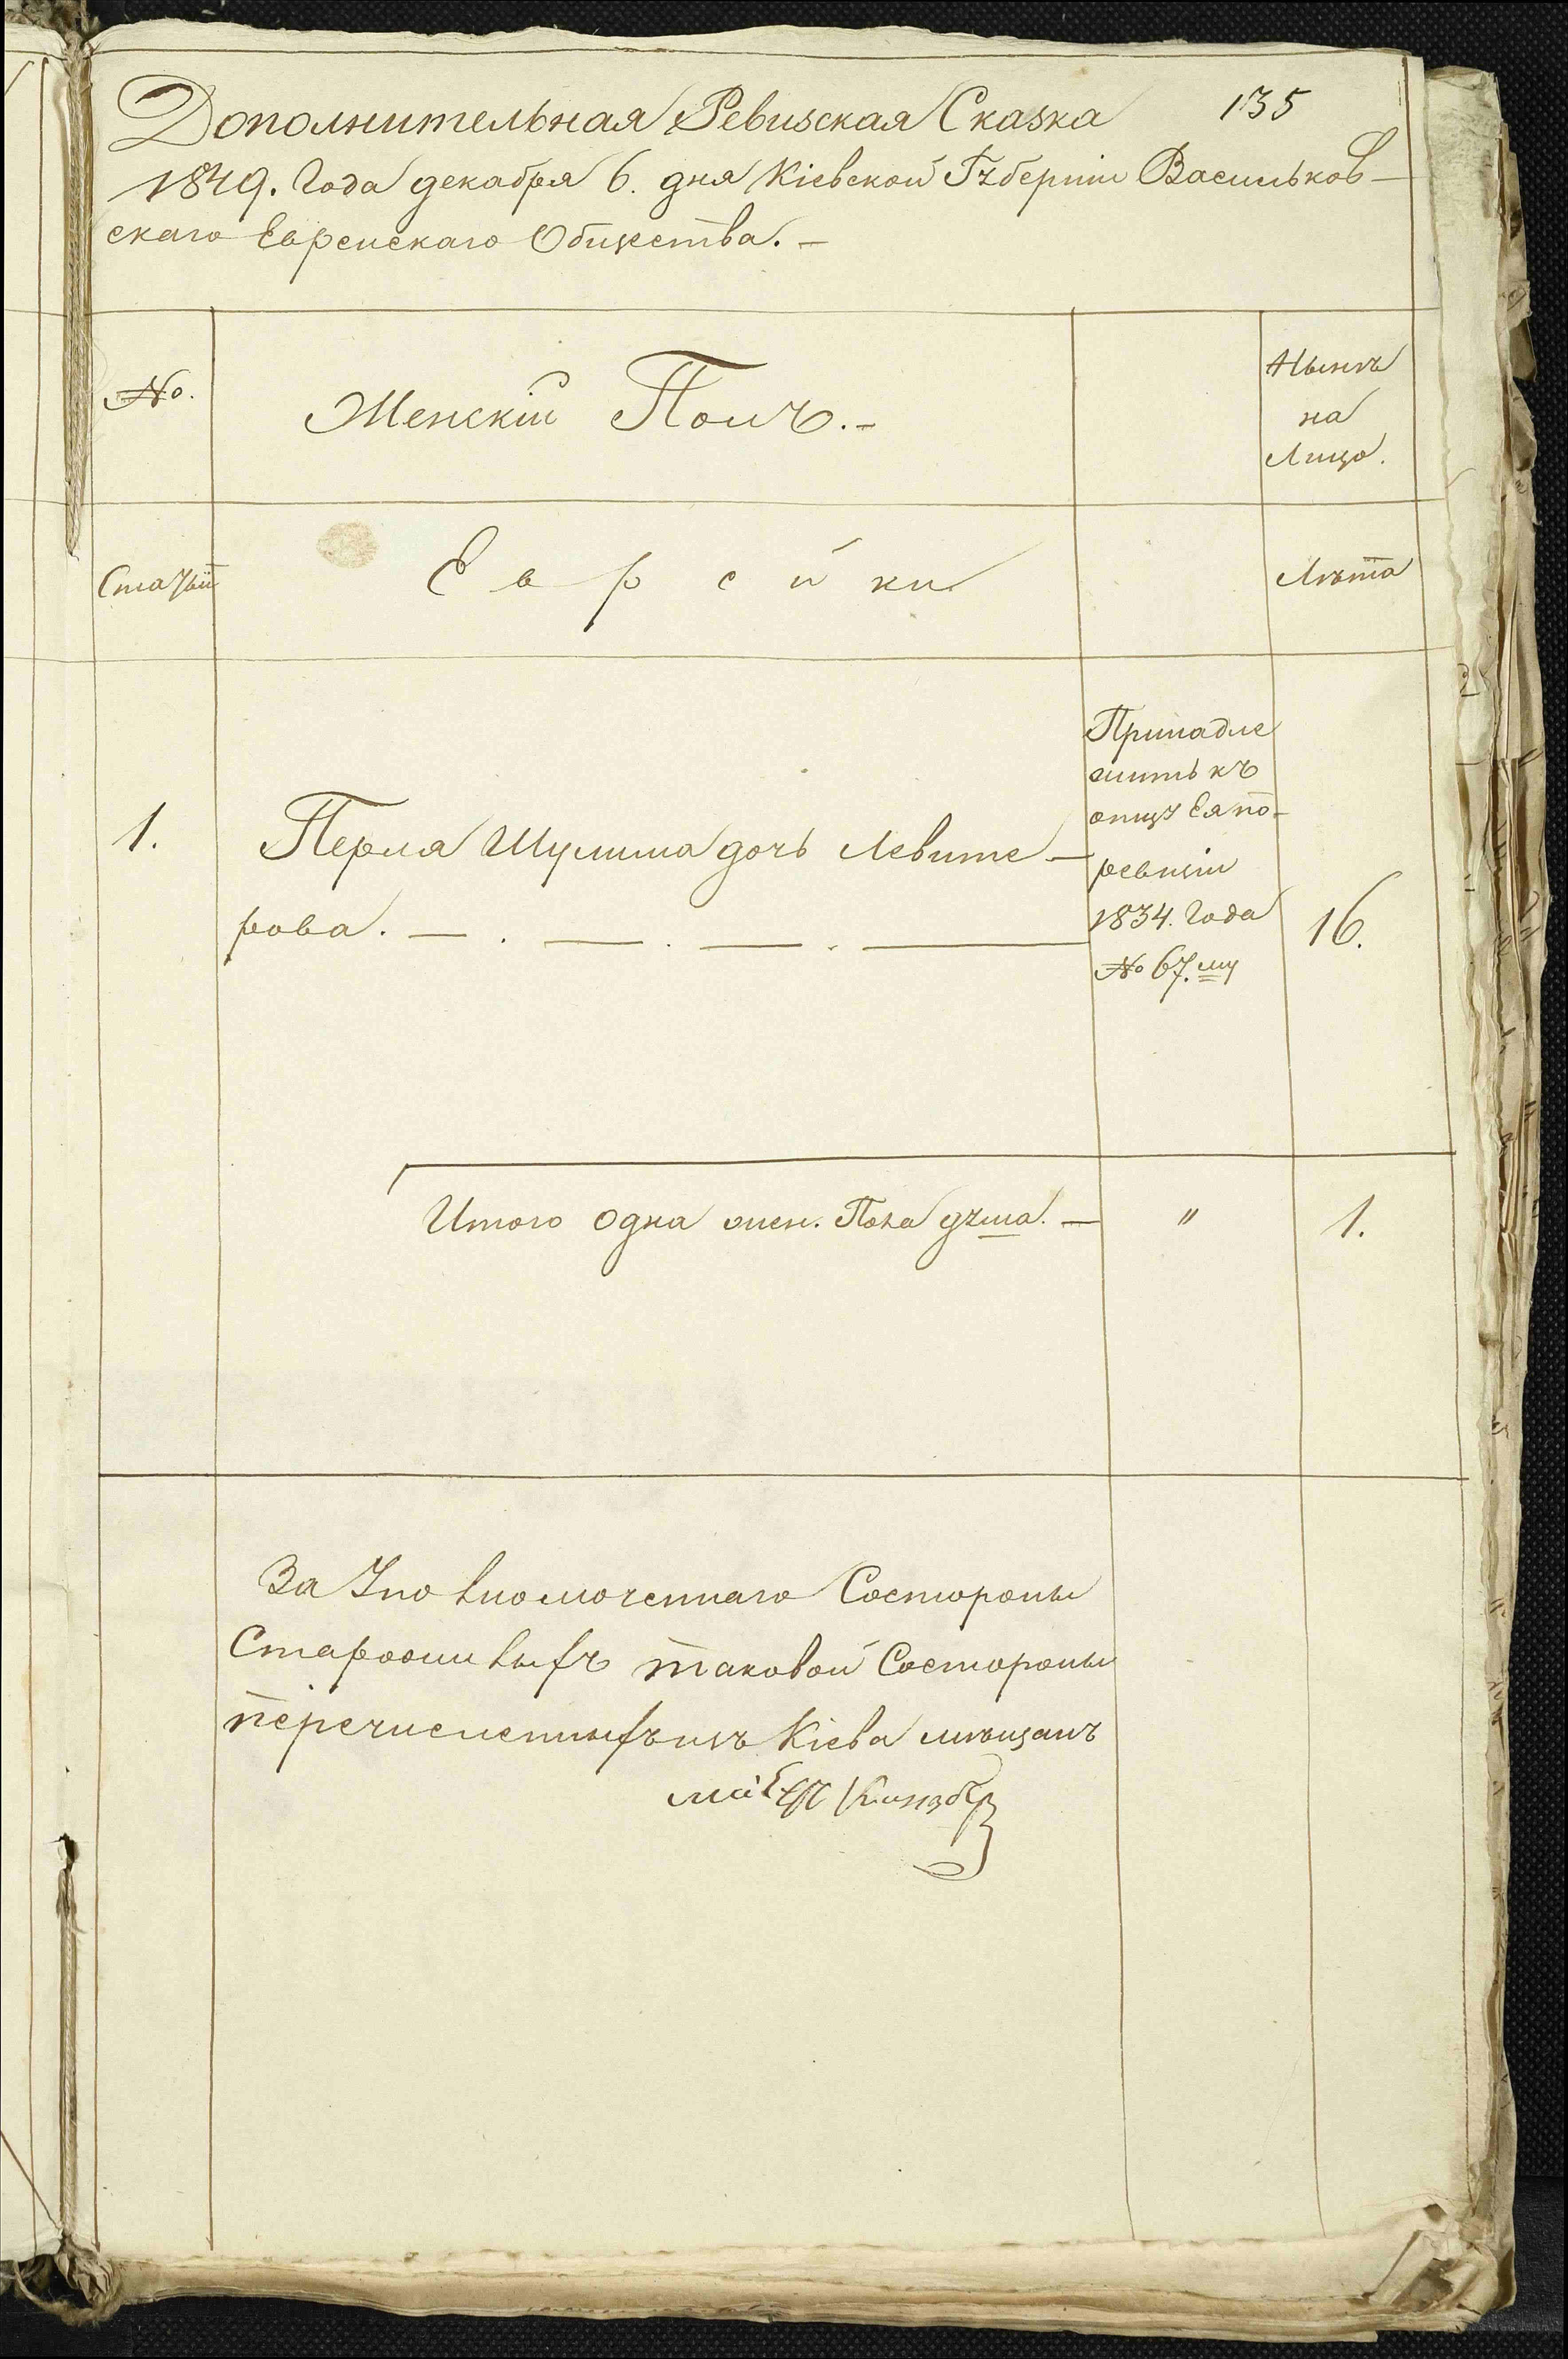 135
Дополнительная Ревизская Сказка
1849. Года декабря 6. дня Кіевской Губерніи Васильков-
скаго Еврейскаго Общества.-
№.
Женскій Полъ.-
Нынѣ
на
Лицо.
Статьи
Еврейки
Лѣта
1.
Перля Шулима дочь Левите-
рова.
Принадле
житъ къ
отцу Ея по-
ревизіи
1834. Года
№ 67.му
16.
Итого одна жен. Пола душа.-
"
1.
За Уповномоченнаго Состороны
Старожилыхъ таковой Состороны
перечисленныхъ изъ Кіева мѣщанъ